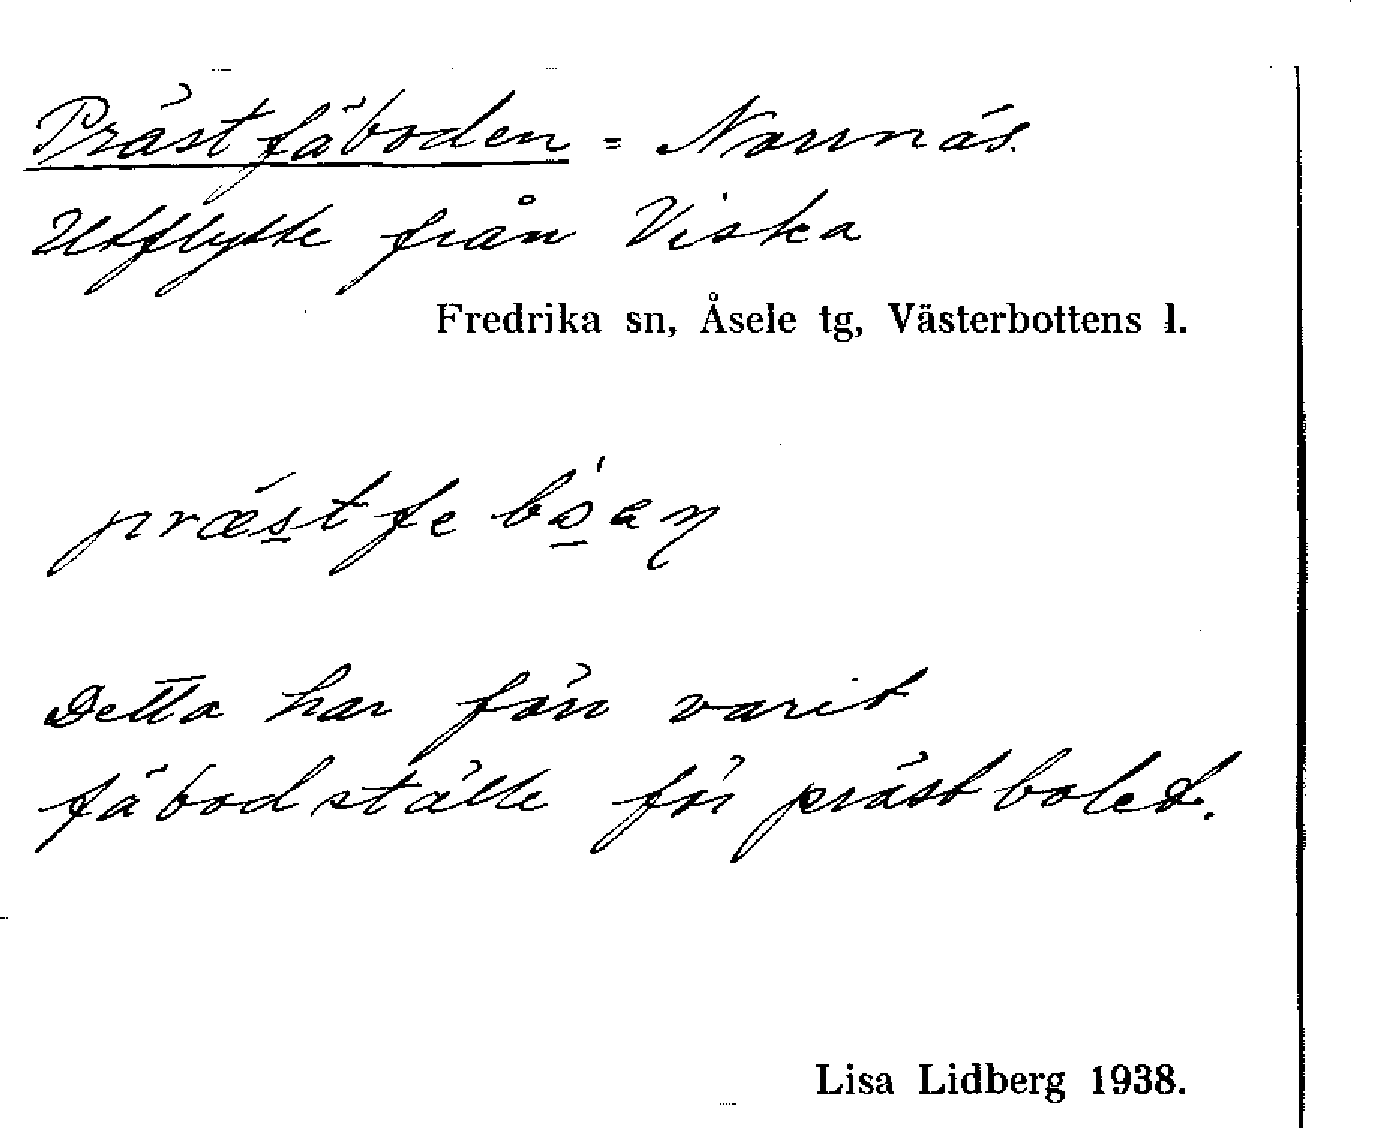 Prästfäboden = Norrnäs.
Utflytte från Viska
Fredrika sn, Åsele tg, Västerbottens l.
præs̲t fe bo̲'an
Detta har förr varit
fäbodställe för prästbolet.
Lisa Lidberg 1938.